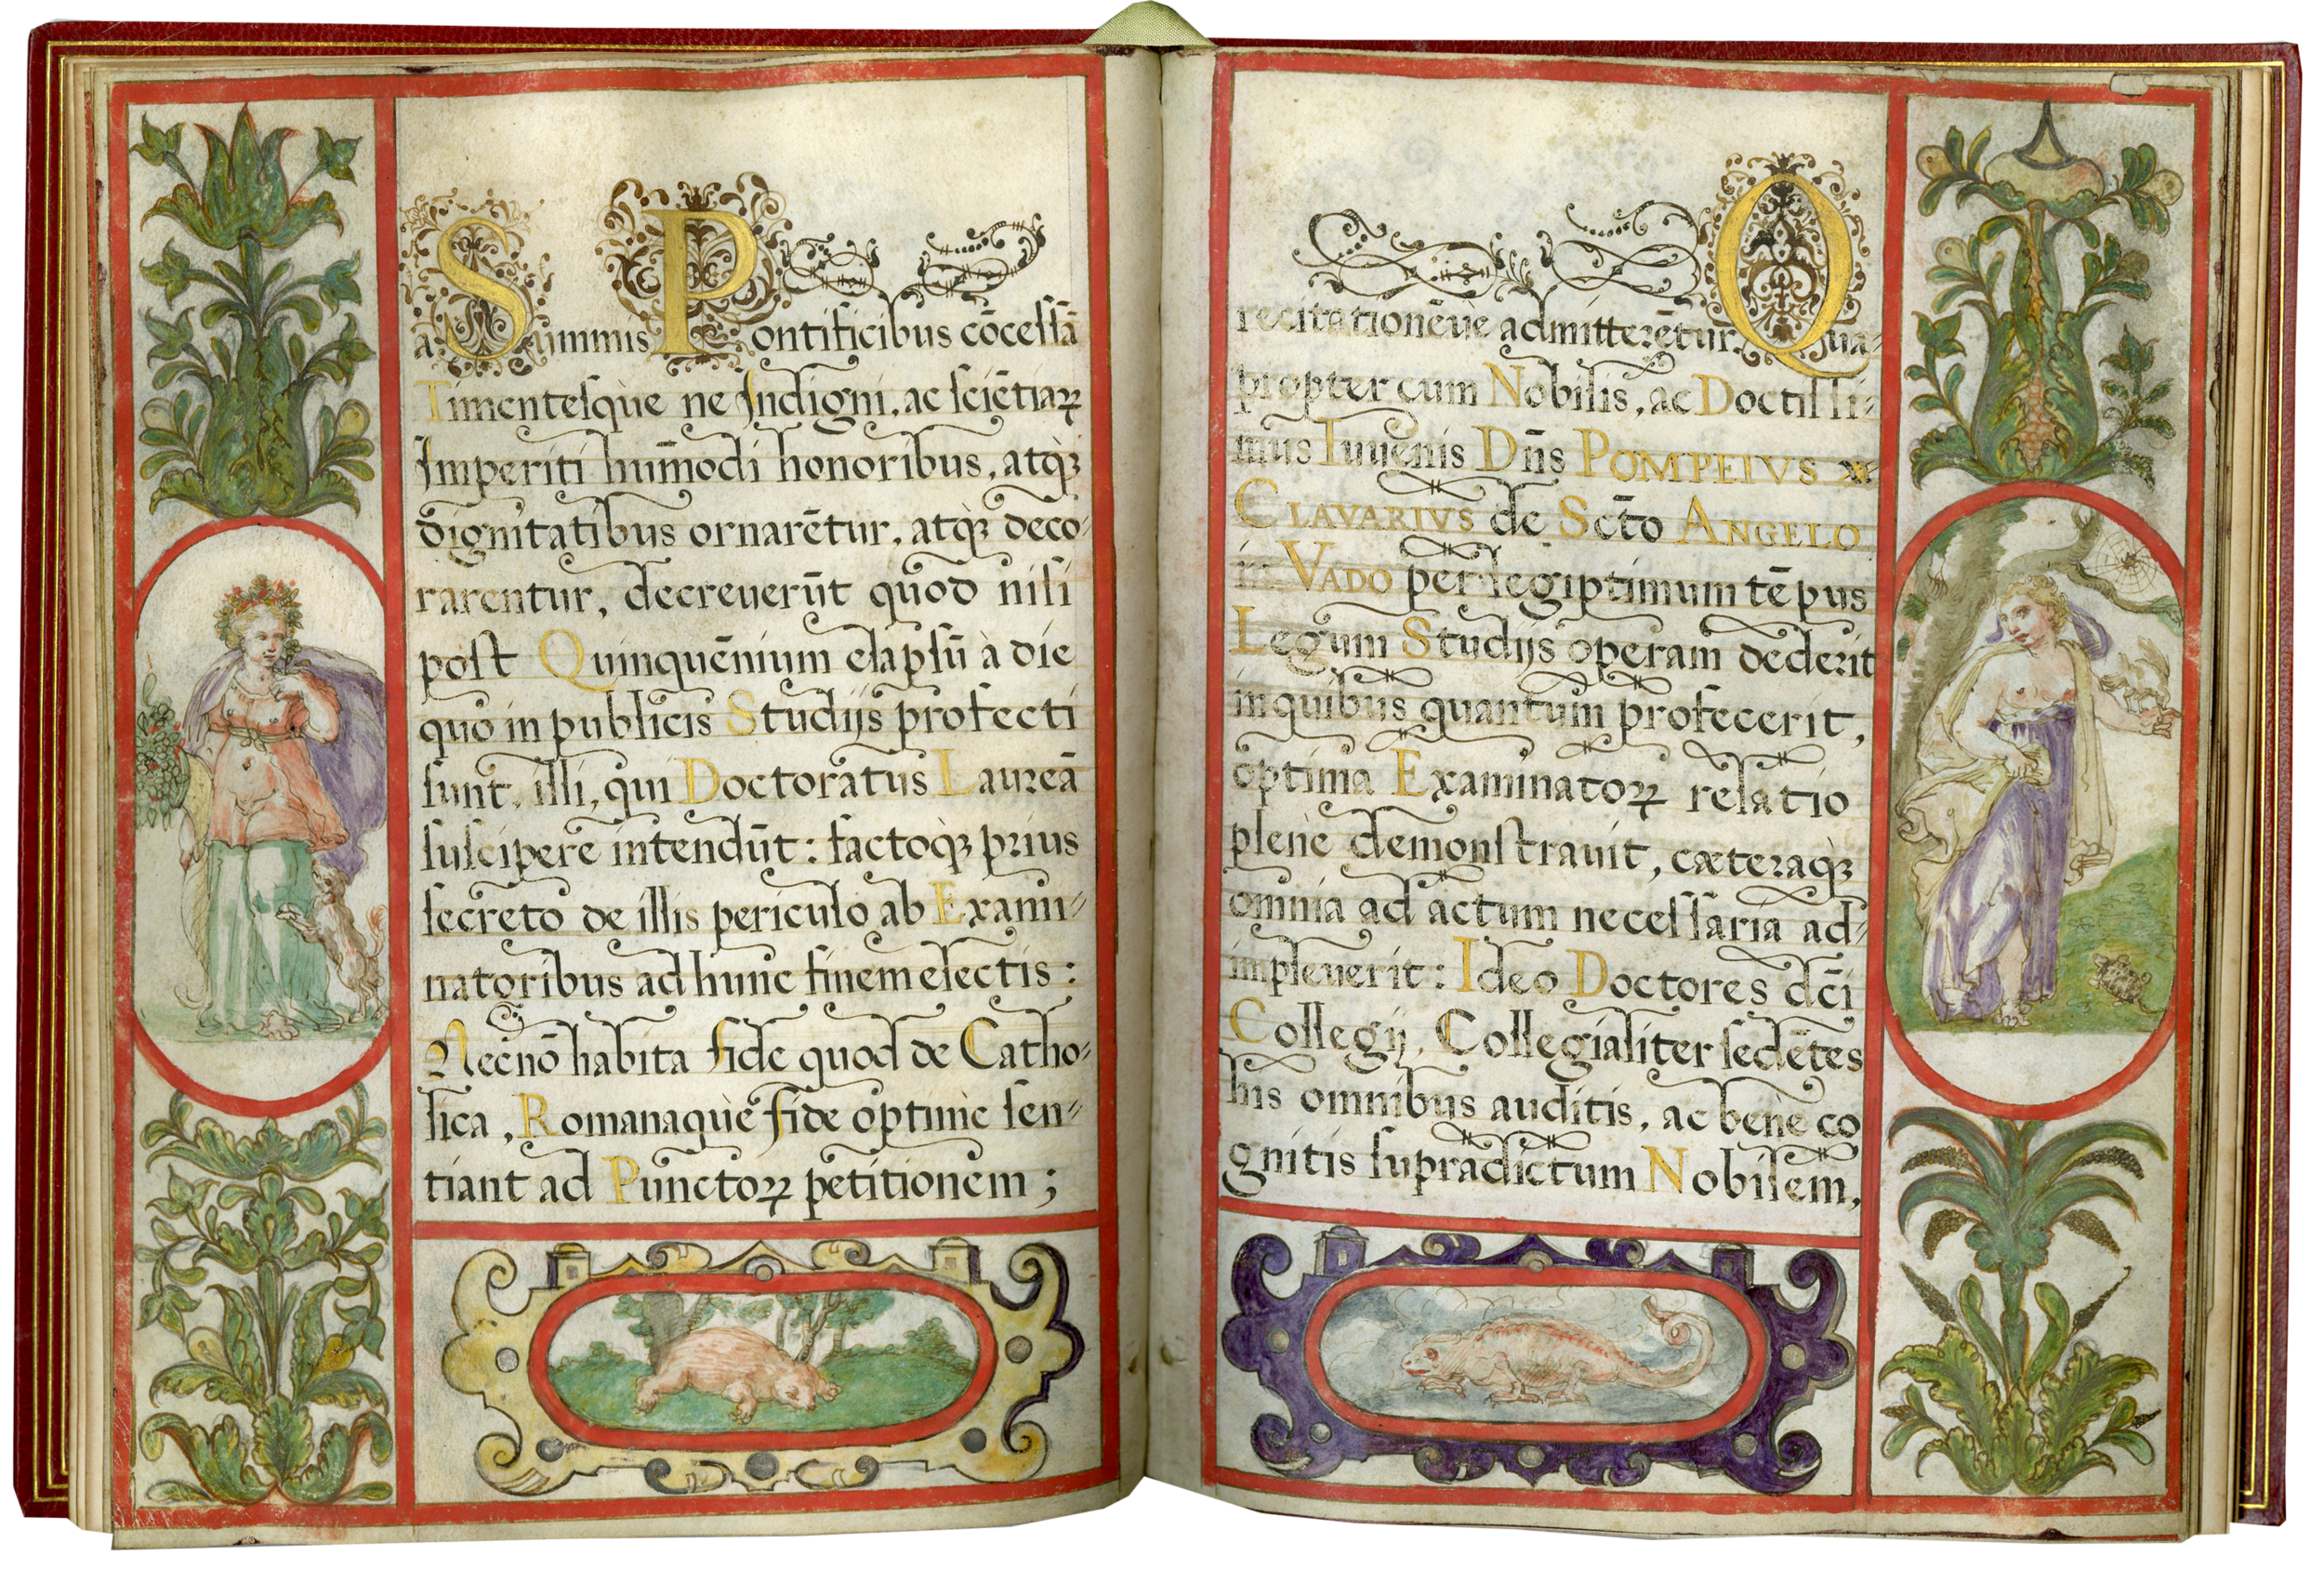 a Summis Pontificibus cōcessā
Timentesq̀ue ne Indigni, ac sciētiaꝝ
Imperiti hūmodi honoribus, atq̀ꝫ
dignitatibus ornarētur, atq̀ꝫ deco-
rarentur, decreuerūt quod nisi
post Quinquēnium elapsū à die
quo in publicis Studijs profecti
sunt, illi, qui Doctoratus Laureā
suscipere intendūt: factoq̀ꝫ prius
secreto de illis periculo ab Exami-
natoribus ad hunc finem electis:
Necnō habita fide quod de Catho-
lica, Romanaquè fide optimè sen-
tiant ad Punctoꝝ petitionem;
recitationēue admitterētur. Qua-
propter cum Nobilis, ac Doctissi-
mus Iuuenis Dn̄s POMPEIVS
CLAVARIVS de Sc̄to ANGELO
in VADO per legiptimum tēpus
Legum Studijs operam dederit
in quibus quantum profecerit,
optima Examinatoꝝ relatio
plenè demonstrauit, cæteraq̀ꝫ
omnia ad actum necessaria ad-
impleuerit: Ideo Doctores dc̄i
Collegij, Collegialiter sedētes
his omnibus auditis, ac benè co
gnitis supradictum Nobilem,